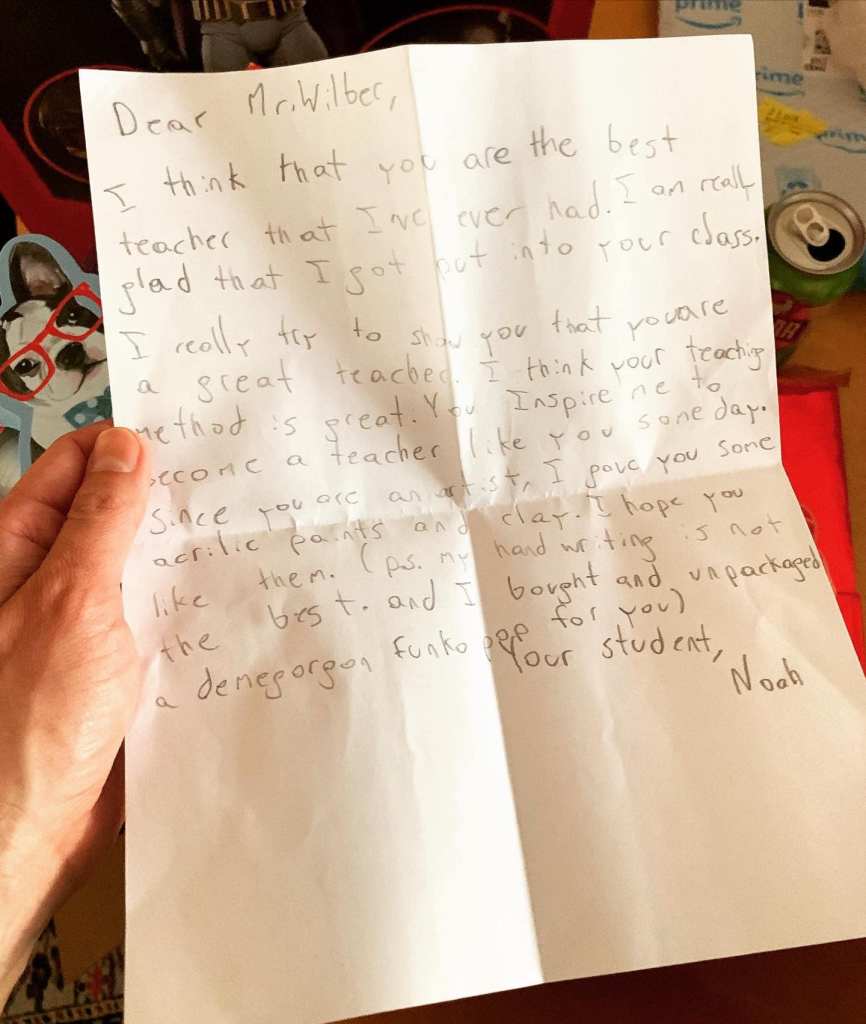 Dear Mr. Wilber,
I think that you are the best
teacher that I've ever had. I am really
glad that I got put into your class.
I really try to show you that you are
a great teacher. I think your teaching
method is great. You Inspire me to
become a teacher like you some day.
Since you are an artist, I gave you some
acrilic paints and clay. I hope you
like them. (ps. my hand writing is not
the best. and I bought and unpackaged
a demegorgon funko pop for you)
Your student,
Noah
prime
rime
prim